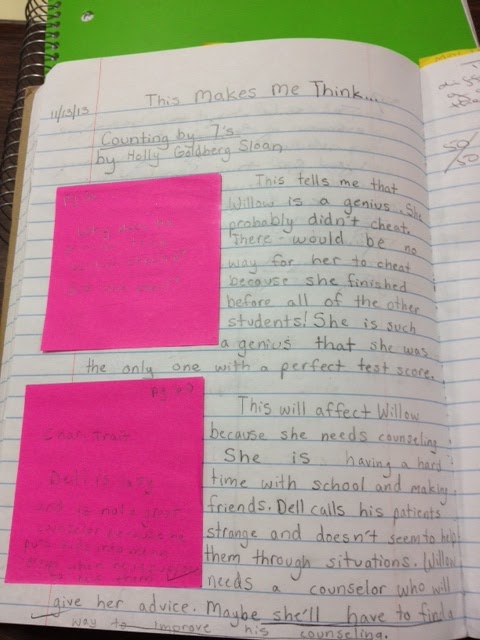 This Makes Me Think...
11/13/13
Counting by 7's
by Holly Goldberg Sloan
This tells me that
Willow is a genius. She
probably didn't cheat.
There would be no
way for her to cheat
because she finished
before all of the other
students! She is such
a genius that she was
the only one with a perfect test score.
Char. Trait
Dell is lazy
and is not a great
counselor because he
This will affect Willow
because she needs counseling.
She is having a hard
time with school and making
friends. Dell calls his patients
strange and doesn't seem to help
them through situations. Willow
needs a counselor who will
give her advice. Maybe she'll have to find a
way to improve his counseling.
50/50